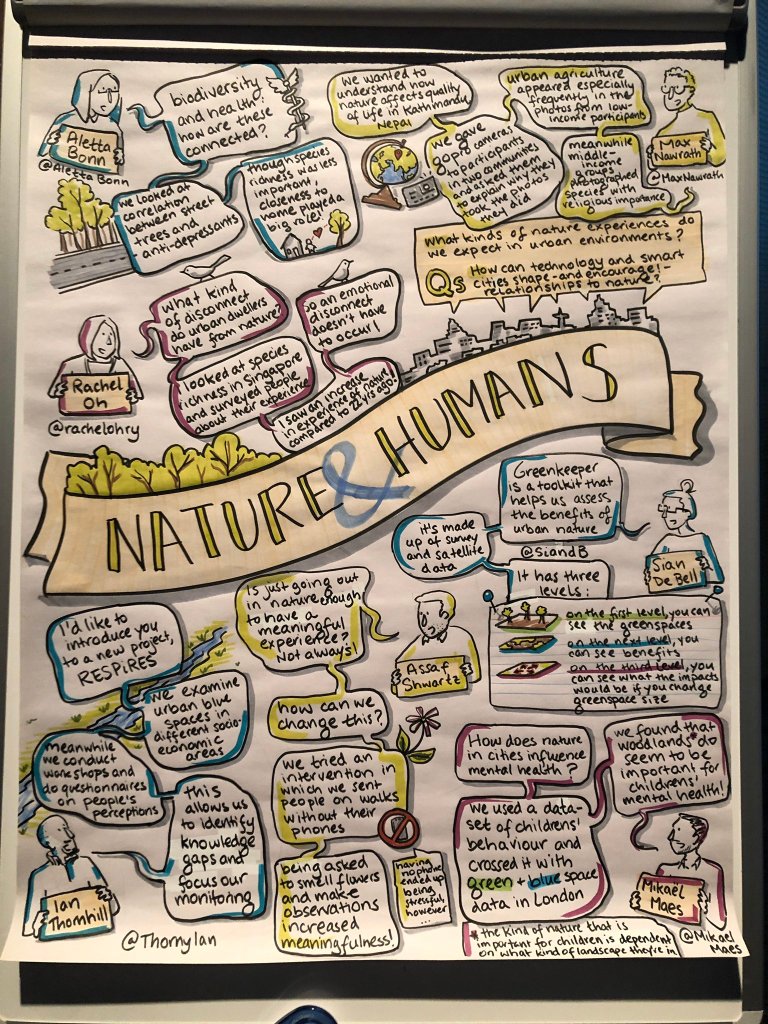 Aletta
Bonn
@AlettaBonn
biodiversity
and health:
how are these
connected?
we looked at
correlation
between street
trees and
anti-depressants
though species
richness was less
important,
closeness to
home played a
big role!
we wanted to
understand how
nature affects quality
of life in Kathmandu,
Nepal
we gave
gopro cameras
to participants
in two communities
and asked them
to explain why they
took the photos
they did
urban agriculture
appeared especially
frequently in the
photos from low-
income participants
meanwhile
middle-
income
groups
photographed
species with
religious importance
Max
Nawrath
@MaxNawrath
What kinds of nature experiences do
we expect in urban environments?
Qs
How can technology and smart
cities shape - and encourage! -
relationships to nature?
Rachel
Oh
@rachelohry
what kind
of disconnect
do urban dwellers
have from nature?
I looked at species
richness in Singapore
and surveyed people
about their experience
I saw an increase
in experience of nature
compared to 22 yrs ago!
so an emotional
disconnect
doesn't have
to occur!
NATURE & HUMANS
Greenkeeper
is a toolkit that
helps us assess
the benefits of
urban nature
@SiandB
it's made
up of survey
and satellite
data
It has three
levels:
Sian
De Bell
on the first level, you can
see the greenspaces
on the next level, you
can see benefits
on the third level, you
can see what the impacts
would be if you change
greenspace size
I'd like to
introduce you
to a new project,
RESPIRES
we examine
urban blue
spaces in
different socio-
economic
areas
meanwhile
we conduct
workshops and
do questionnaires
on people's
perceptions
this
allows us
to identify
knowledge
gaps and
focus our
monitoring
Ian
Thornhill
@ThornyIan
Is just going out
in nature enough
to have a
meaningful
experience?
Not always!
Assaf
Shwartz
how can we
change this?
we tried an
intervention in
which we sent
people on walks
without their
phones
being asked
to smell flowers
and make
observations
increased
meaningfulness!
having
no phone
ended up
being
stressful,
however
...
How does nature
in cities influence
mental health?
we used a data-
set of childrens'
behaviour and
crossed it with
green + blue space
data in London
we found that
woodlands* do
seem to be
important for
childrens'
mental health!
Mikaël
Maes
@Mikael
Maes
* the kind of nature that is
important for children is dependent
on what kind of landscape they're in